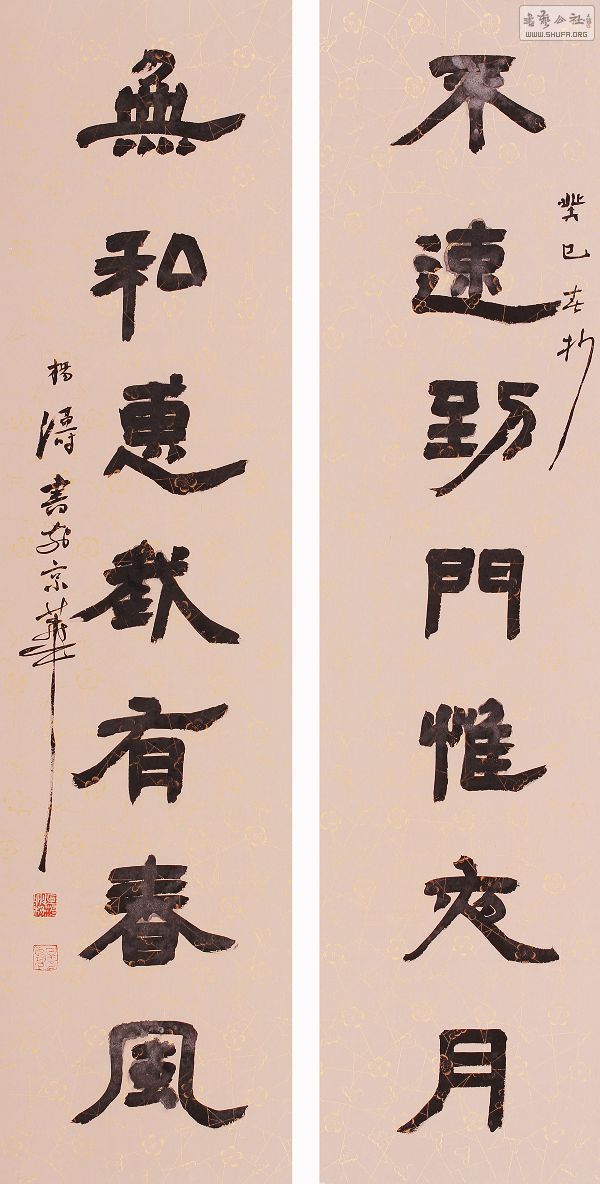 書藝公社
WWW.SHUFA.ORG
不速到門惟夜月
癸巳春杪
無私惠我有春風
楊濤書於京華